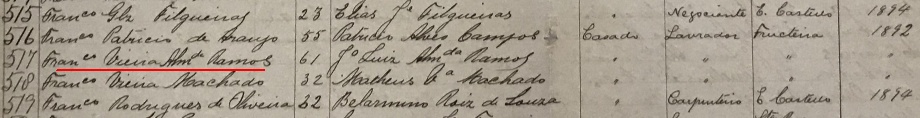 515 Franco Glz Filgueiras 23 Elias Ja Filgueiras " Negociente E. Castello 1894
516 Franco Patricio de Araujo 55 Patricio Alves Campos Casado Lavrador Fructeira 1892
517 Franco Vieira Almda Ramos 61 Ja Luiz Almda Ramos " " " "
518 Franco Vieira Machado 32 Matheus Machado " " " "
519 Franco Rodrigues de Oliveira 32 Belarmino Roiz de Souza " Carpinteiro E. Castello 1894